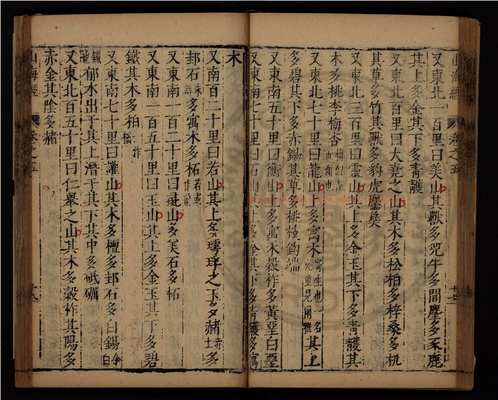 又東北一百里曰美山其獸多兕牛多閭麈多豕鹿
其上多金其下多青雘
又東北百里曰大堯之山其木多松柏多梓桑多机
其草多竹其獸多豹虎麢㚟
又東北三百里曰靈山其上多金玉其下多青雘其
木多桃李梅杏
又東北七十里曰龍山上多寓木其上
多碧其下多赤錫其草多桃枝鉤端
又東南五十里曰衡山上多寓木穀柞多黃堊白堊
又東南七十里曰石山其上多金其下多青雘多寓
木
又南百二十里曰若山其上多㻬琈之玉多赭
多
封石多寓木多柘
又東南一百二十里曰彘山多美石多柘
又東南一百五十里曰玉山其上多金玉其下多碧
鐵其木多柏
又東南七十里曰讙山其木多檀多封石多白錫
郁水出于其上潛于其下其中多砥礪
又東北百五十里曰仁舉之山其木多穀柞其陽多
赤金其陰多赭
山海經
卷之五